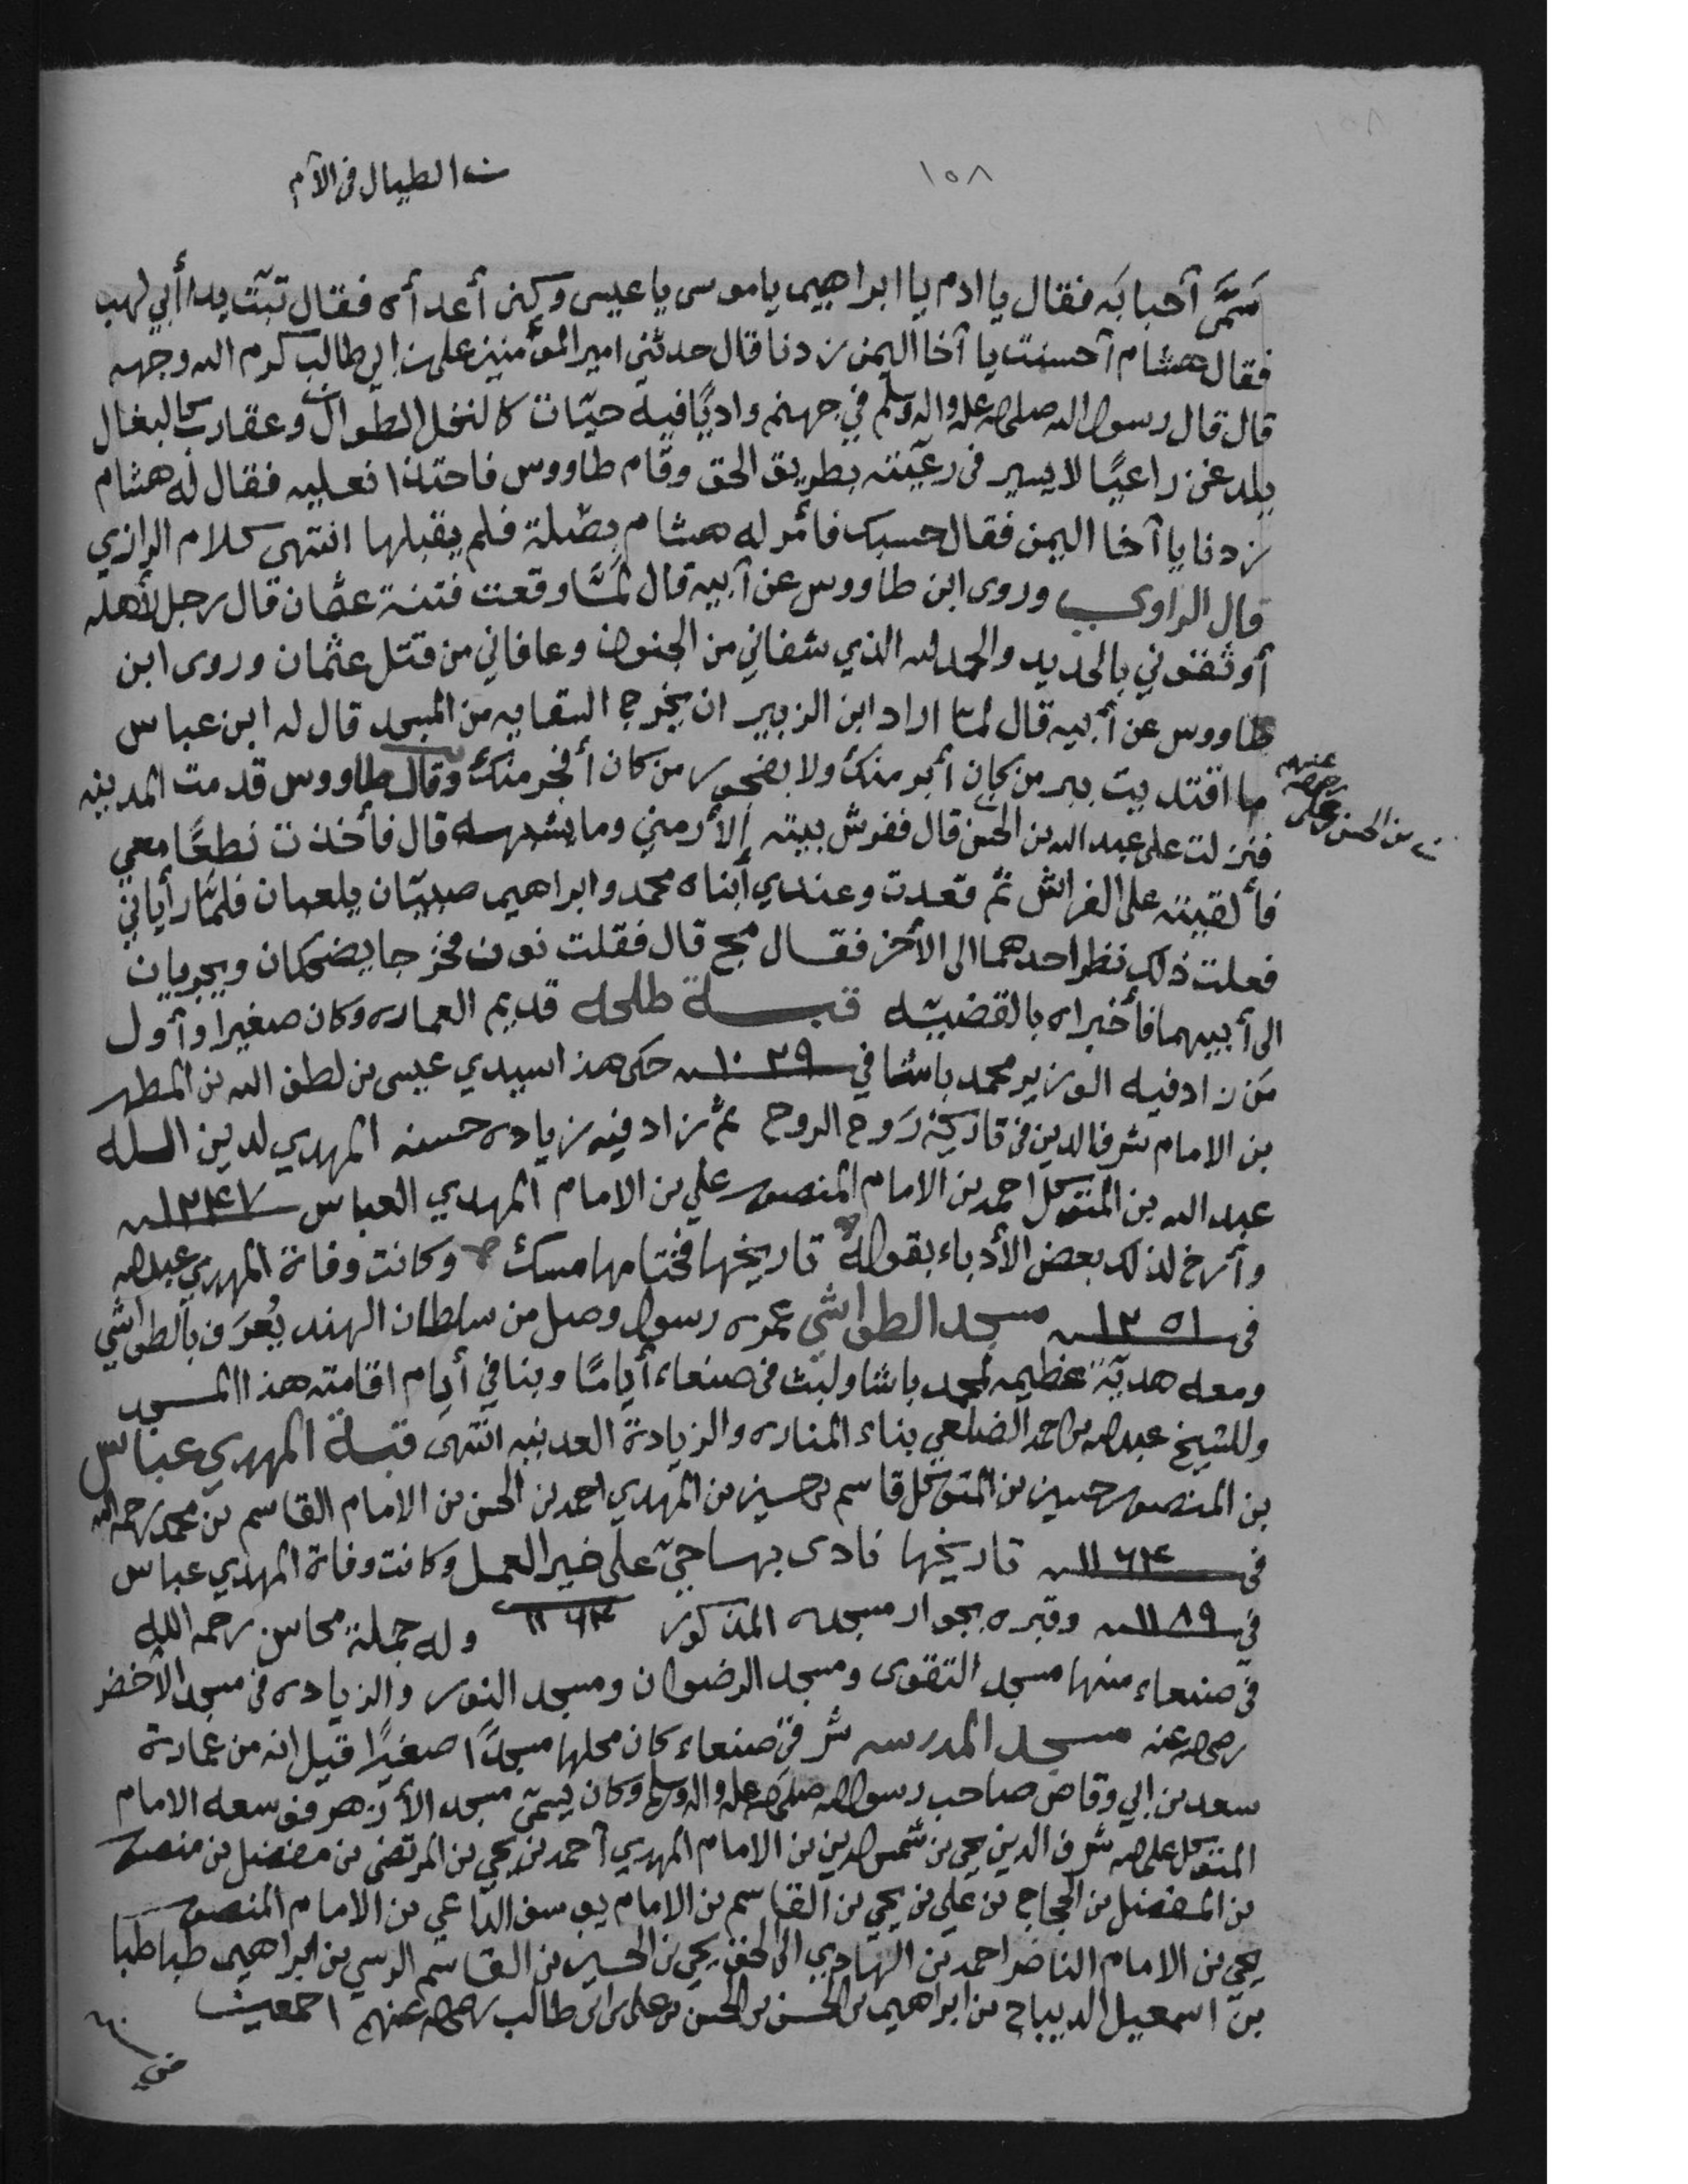 ١٥٨
ت الطيال فى الآم
سَمَّى آحبابَه فقال يا ادم يا ابراهيم يا موسى يا عيسى وكنى أعدأه فقال تبّت يدا أبي لهب
فقال هشام آحسنت يا آخا اليمن زدنا قال حدثني امير المؤمنين على بن ابي طالب كرم الله وجهه
قال قال رسول الله صلى الله عليه واله وسلم في جهنم واديًا فيه حيّات كالنخل الطوال وعقارب كالبغال
يلدغن راعيًا لا يسير فى رعيّته بطريق الحق وقام طاووس فاحتذا نعليه فقال له هشام
زدنا يا آخا اليمن فقال حسبك فأمر له هشام بصّلة فلم يقبلها انتهى كلام الرازي
قال الراوي وروى ابن طاووس عن آبيه قال لمَّا وقعت فتنة عثمان قال رجل لأهله
أوثقوني بالحديد والحمد لله الذي شفاني من الجنون وعافاني من قتل عثمان وروى ابن
طاووس عن أبيه قال لمّا اراد ابن الزبير ان يخرج السقايه من المسجد قال له ابن عباس
ما اقتديت ببر من كان أبر منك ولا بفجور من كان أفجر منك وقال طاووس قدمت المدينه
فنزلت على عبد الله بن الحسن قال ففرش بيته الأرمني وما يشبهه قال فأخذت نطعًا معي
بن الحسن بن على رضى الله عنهم
فألقيته على الفراش ثم قعدت وعندي أبناه محمد وابراهيم صبيّان يلعبان فلمّا رأياني
فعلت ذلك نظر احدهما الى الأخر فقال مج قال فقلت نون فخرجا يضحكان ويجريان
الى أبيهما فأخبراه بالقضيّه قبة طلحه قديم العماره وكان صغيرا وأول
مَن زاد فيه الوزير محمد باشا في ١٠٢٩ حكى هذا سيدي عيسى بن لطف الله بن المطهر
بن الامام شرف الدين فى تاريخه رَوح الروح ثمَّ زاد فيه زياده حسنه المهدي لدين الله
عبد الله بن المتوكل احمد بن الامام المنصور علي بن الامام المهدي العباس ١٢٤٧
وأرخ لذلك بعض الأدباء بقوله تاريخها فختامها مسك وكانت وفاة المهدي عبد الله
فى ١٢٥١ مسجد الطواشي عمره رسول وصل من سلطان الهند يُعرَف بالطواشي
ومعه هديّة عظيمه لمحمد باشا ولبث فى صنعاء أيامًا وبنا في أيام اقامته هذا المسجد
وللشيخ عبد الله بن احمد الضلعي بناء المناره والزيادة العدنيه انتهى قبة المهدي عباس
بن المنصور حسين بن المتوكل قاسم بن حسين بن المهدي احمد بن الحسن بن الامام القاسم بن محمد رحمه الله
فى ١١٦٤ تاريخها نادى بها حيّ على خير العمل وكانت وفاة المهدي عباس
في ١١٨٩ وقبره بجوار مسجده المذكور ١١٦٤ وله جملة محاسن رحمه الله
فى صنعاء منها مسجد التقوى ومسجد الرضوان ومسجد النور والزياده فى مسجد الأخضر
رضى الله عنه مسجد المدرسه شرقى صنعاء كان محلها مسجدًا صغيرًا قيل انه من عمارة
سعد بن ابي وقاص صاحب رسول الله صلى الله عليه واله وسلم وكان يسمّى مسجد الأزهر فوسعه الامام
المتوكل على الله شرف الدين يحي بن شمس الدين بن الامام المهدي آحمد بن يحي بن المرتضى بن مفضل بن منصور
بن المفضل بن الحجاج بن علي بن يحي بن القاسم بن الامام يوسف الداعي بن الامام المنصور
يحي بن الامام الناصر احمد بن الهادي الى الحق يحي بن الحسين بن القاسم الرسي بن ابراهيم طباطبا
بن اسمعيل الديباج بن ابراهيم بن الحسن بن الحسن بن على بن ابى طالب رضى الله عنهم اجمعين